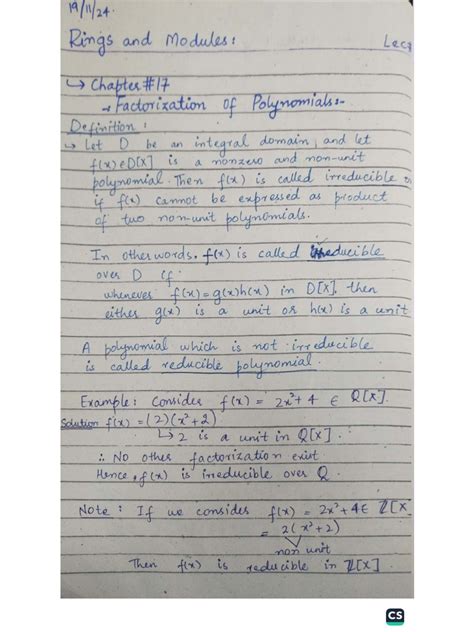 19/11/24.
Rings and Modules:
Lec
↳ Chapter #17
→ Factorization of Polynomials:-
Definition:
→ Let D be an integral domain, and let
f(x)∈D[X] is a nonzero and non-unit
polynomial. Then f(x) is called irreducible
if f(x) cannot be expressed as product
of two non-unit polynomials.
In other words, f(x) is called irreducible
over D if
whenever f(x)=g(x)h(x) in D[X], then
either g(x) is a unit or h(x) is a unit
A polynomial which is not irreducible
is called reducible polynomial.
Example: Consider f(x) = 2x²+4 ∈ Q[X].
Solution f(x) = (2)(x²+2)
↳ 2 is a unit in Q[X].
∴ No other factorization exist
Hence, f(x) is irreducible over Q.
Note: If we consider f(x) = 2x²+4 ∈ ℤ[X
= 2(x²+2)
non unit
Then f(x) is reducible in ℤ[X].
CS